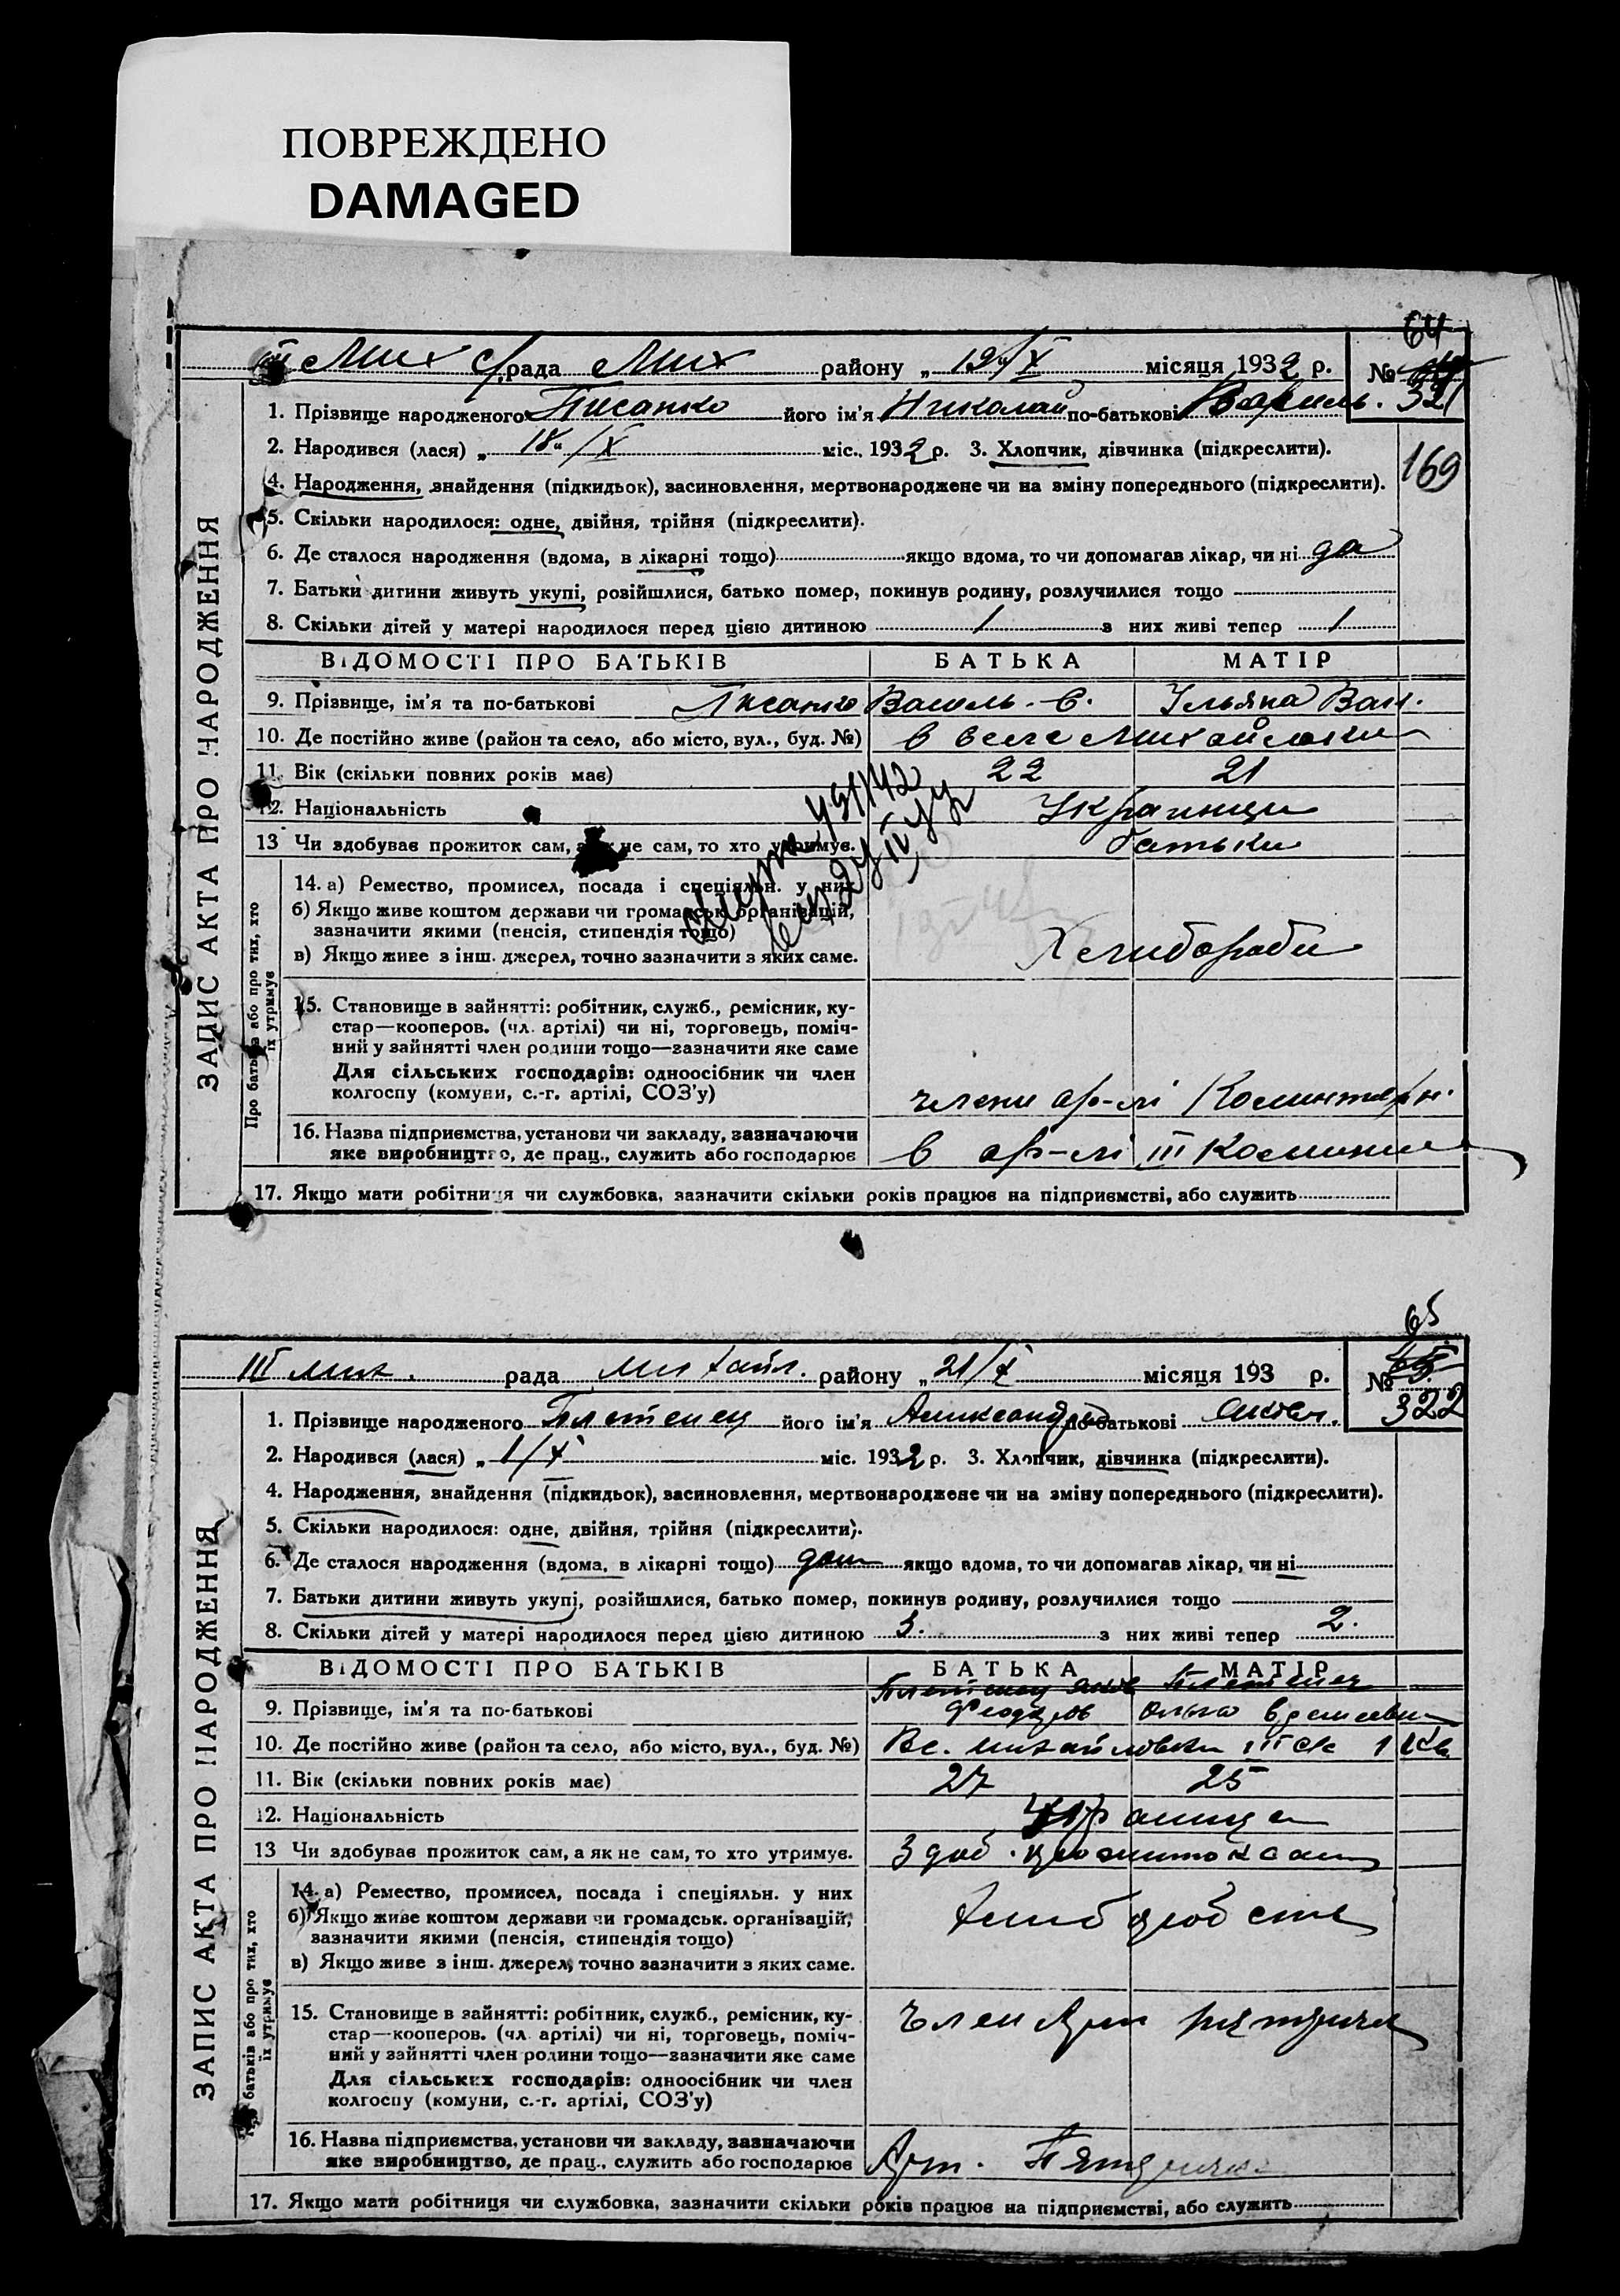 ПОВРЕЖДЕНО
DAMAGED
64
Мих с/рада Мих району „ 19/X місяця 1932 р. №
321
1. Прізвище народженого Писанко його ім'я Николай по-батькові Василь.
2. Народився (лася) „ 18/X міс. 1932 р. 3. Хлопчик, дівчинка (підкреслити).
169
4. Народження, знайдення (підкидьок), засиновлення, мертвонароджене чи на зміну попереднього (підкреслити).
5. Скільки народилося: одне, двійня, трійня (підкреслити).
6. Де сталося народження (вдома, в лікарні тощо) якщо вдома, то чи допомагав лікар, чи ні да
7. Батьки дитини живуть укупі, розійшлися, батько помер, покинув родину, розлучилися тощо
8. Скільки дітей у матері народилося перед цією дитиною 1 з них живі тепер 1
ВІДОМОСТІ ПРО БАТЬКІВ БАТЬКА МАТІР
9. Прізвище, ім'я та по-батькові Писанко Василь. В. Ульяна Вас.
10. Де постійно живе (район та село, або місто, вул., буд. №) в веле Михайловки
11. Вік (скільки повних років має) 22 21
12. Національність Украинци
13 Чи здобував прожиток сам, а як не сам, то хто утримує. батьки
14. а) Ремество, промисел, посада і спеціяльн. у них
б) Якщо живе коштом держави чи громадськ. організацій,
зазначити якими (пенсія, стипендія тощо)
в) Якщо живе з інш. джерел, точно зазначити з яких саме.
Хлибороби
15. Становище в зайнятті: робітник, служб., ремісник, ку-
стар—кооперов. (чл. артілі) чи ні, торговець, поміч-
ний у зайнятті член родини тощо—зазначити яке саме
Для сільських господарів: одноосібник чи член
колгоспу (комуни, с.-г. артілі, СОЗ'у)
члени ар-лі Коминтерн.
16. Назва підприємства, установи чи закладу, зазначаючи
яке виробництво, де прац., служить або господарює
в ар-лі III Коминт
17. Якщо мати робітниця чи службовка, зазначити скільки років працює на підприємстві, або служить
ЗАПИС АКТА ПРО НАРОДЖЕННЯ
Про батьків або про тих, хто
їх утримує
65
III мих. рада Михайл. району „ 21/X місяця 193 р. №
322
1. Прізвище народженого Плетенец його ім'я Александра по-батькові Яковл.
2. Народився (лася) „ 1/X міс. 1932 р. 3. Хлопчик, дівчинка (підкреслити).
4. Народження, знайдення (підкидьок), засиновлення, мертвонароджене чи на зміну попереднього (підкреслити).
5. Скільки народилося: одне, двійня, трійня (підкреслити).
6. Де сталося народження (вдома, в лікарні тощо) дом якщо вдома, то чи допомагав лікар, чи ні
7. Батьки дитини живуть укупі, розійшлися, батько помер, покинув родину, розлучилися тощо
8. Скільки дітей у матері народилося перед цією дитиною 3. з них живі тепер 2.
ВІДОМОСТІ ПРО БАТЬКІВ БАТЬКА МАТІР
Плетенец Яков Плетенец
9. Прізвище, ім'я та по-батькові Ольга
10. Де постійно живе (район та село, або місто, вул., буд. №) Вс. михайловка III
11. Вік (скільки повних років має) 27 25
12. Національність Украинца
13 Чи здобував прожиток сам, а як не сам, то хто утримує. Здоб. прожиток сам
14. а) Ремество, промисел, посада і спеціяльн. у них
б) Якщо живе коштом держави чи громадськ. організацій,
зазначити якими (пенсія, стипендія тощо)
в) Якщо живе з інш. джерел, точно зазначити з яких саме.
15. Становище в зайнятті: робітник, служб., ремісник, ку-
стар—кооперов. (чл. артілі) чи ні, торговець, поміч-
ний у зайнятті член родини тощо—зазначити яке саме
Для сільських господарів: одноосібник чи член
колгоспу (комуни, с.-г. артілі, СОЗ'у)
Член Арт
16. Назва підприємства, установи чи закладу, зазначаючи
яке виробництво, де прац., служить або господарює
Арт.
17. Якщо мати робітниця чи службовка, зазначити скільки років працює на підприємстві, або служить
ЗАПИС АКТА ПРО НАРОДЖЕННЯ
батьків або про тих, хто
їх утримує